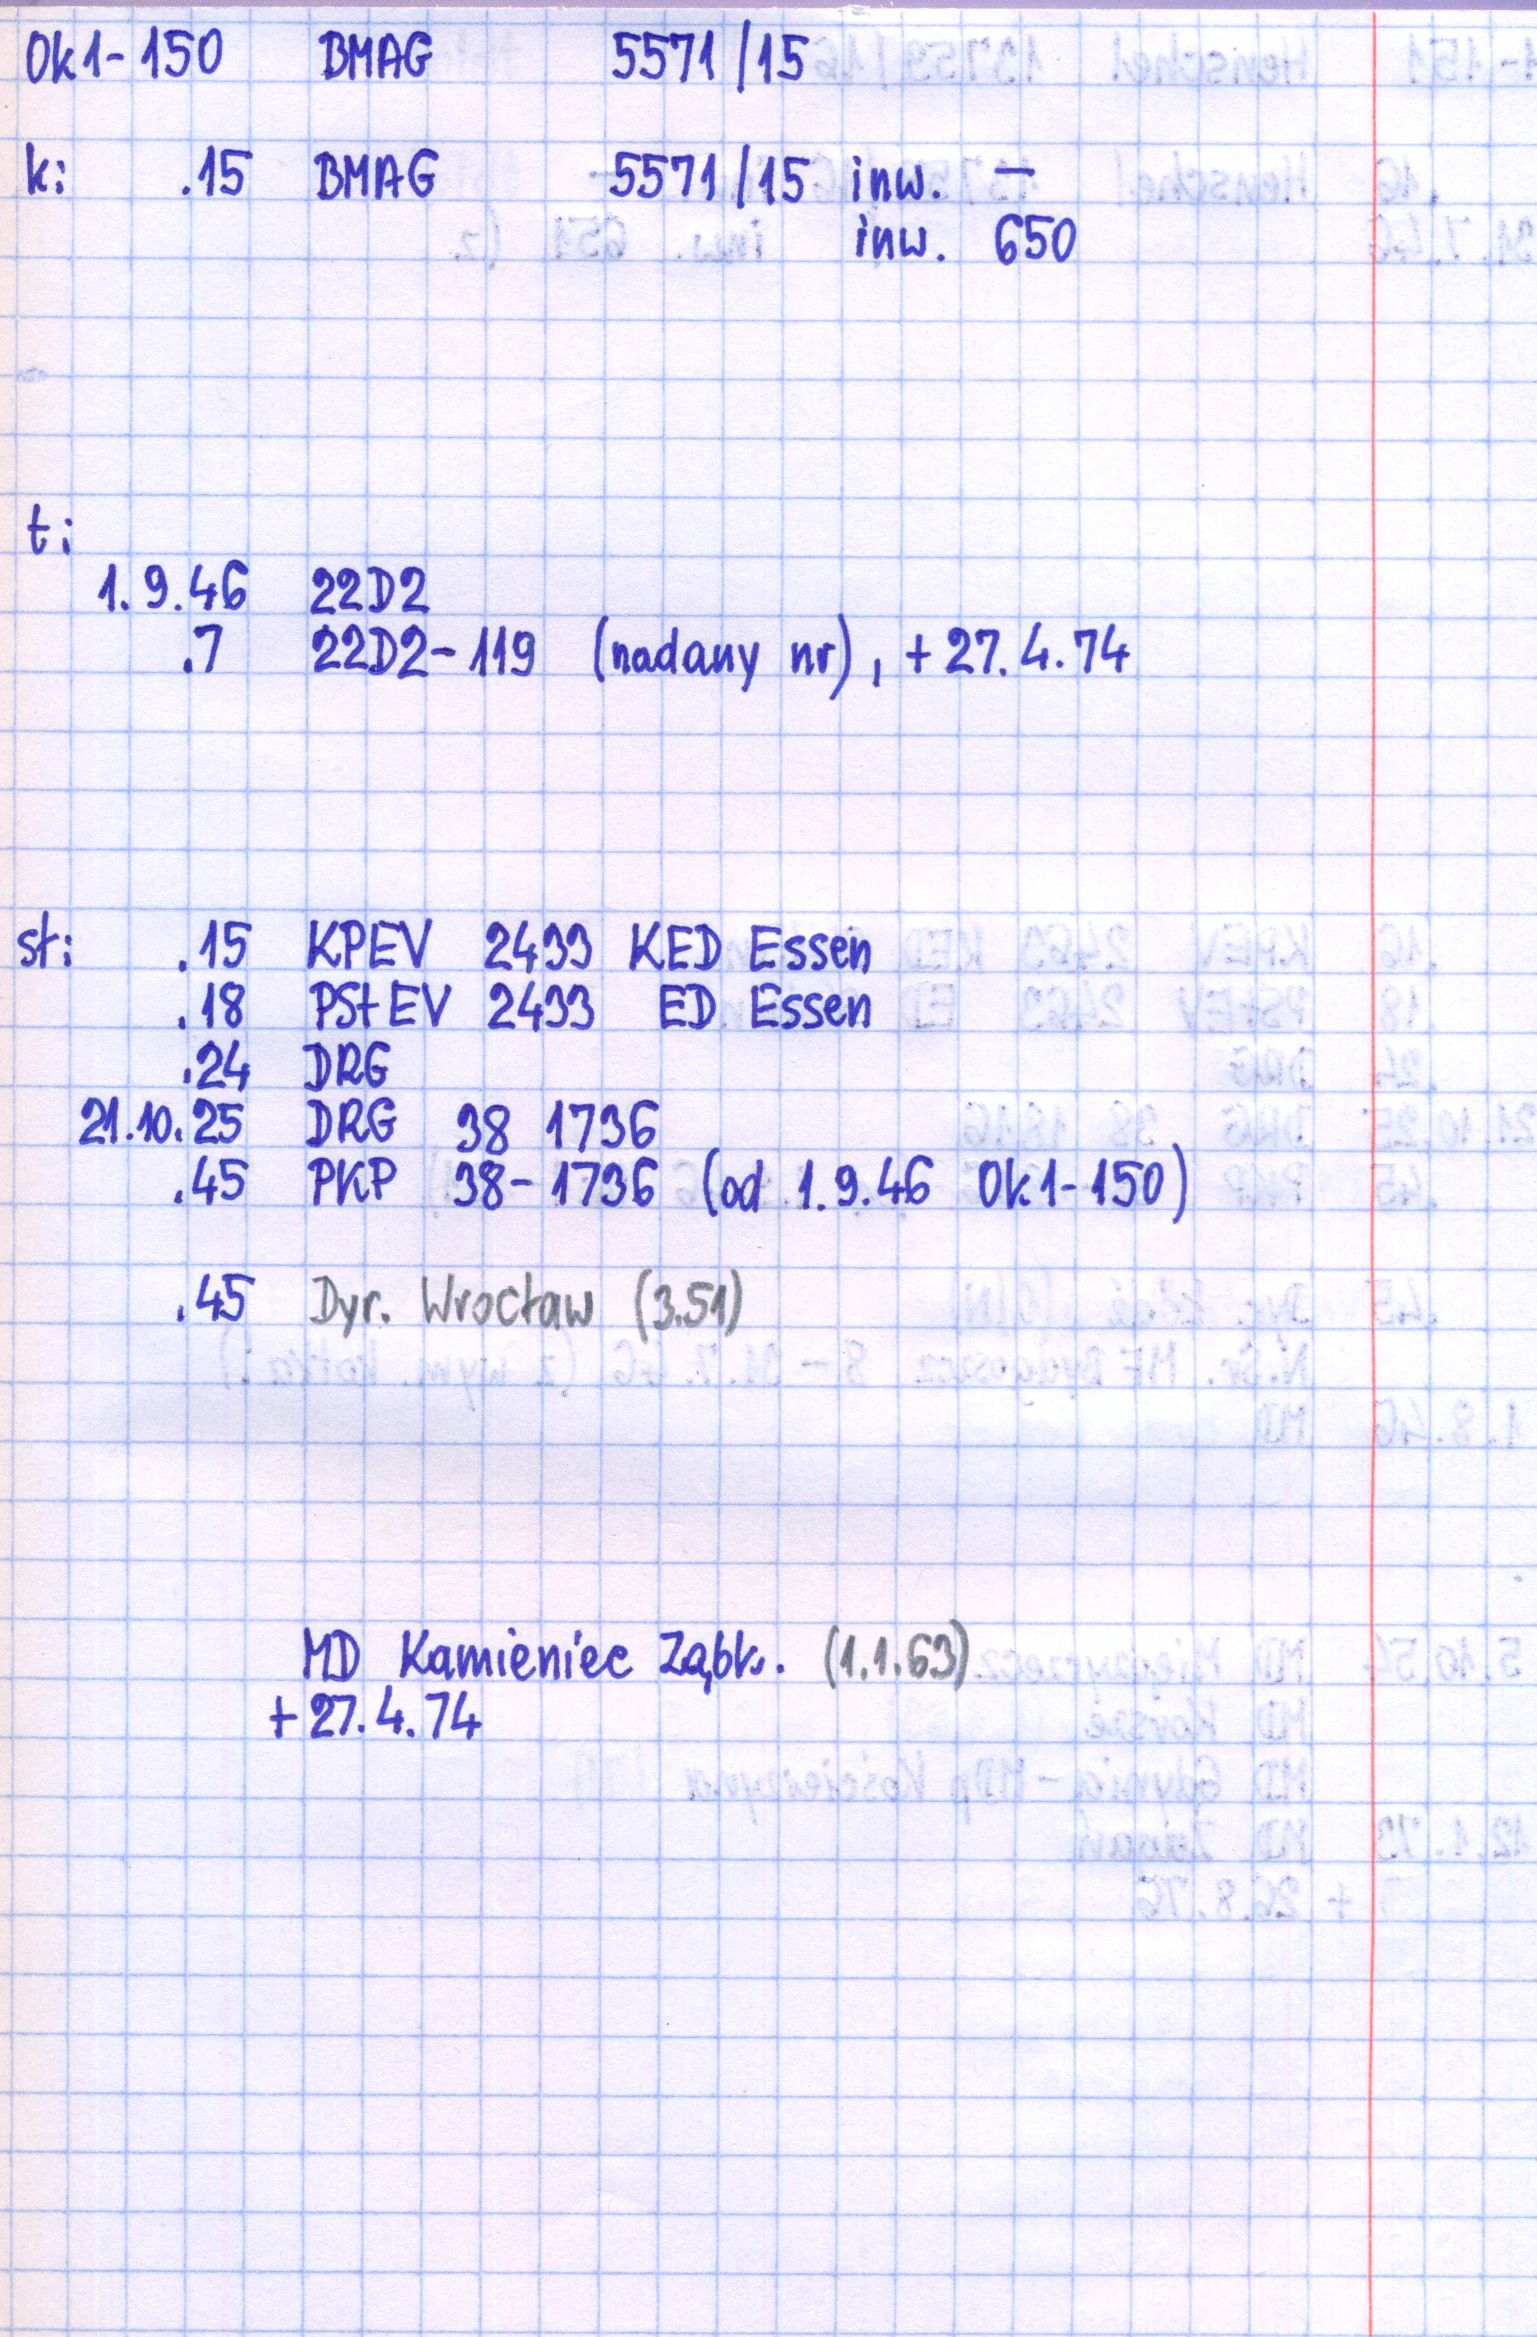 Ok1-150 BMAG 5571/15
k: .15 BMAG 5571/15 inw. —
inw. 650
t:
1.9.46 22D2
.7 22D2-119 (nadany nr), +27.4.74
st: .15 KPEV 2433 KED Essen
.18 PStEV 2433 ED Essen
.24 DRG
21.10.25 DRG 38 1736
.45 PKP 38-1736 (od 1.9.46 Ok1-150)
.45 Dyr. Wrocław (3.51)
MD Kamieniec Ząbk. (1.1.63)
+27.4.74